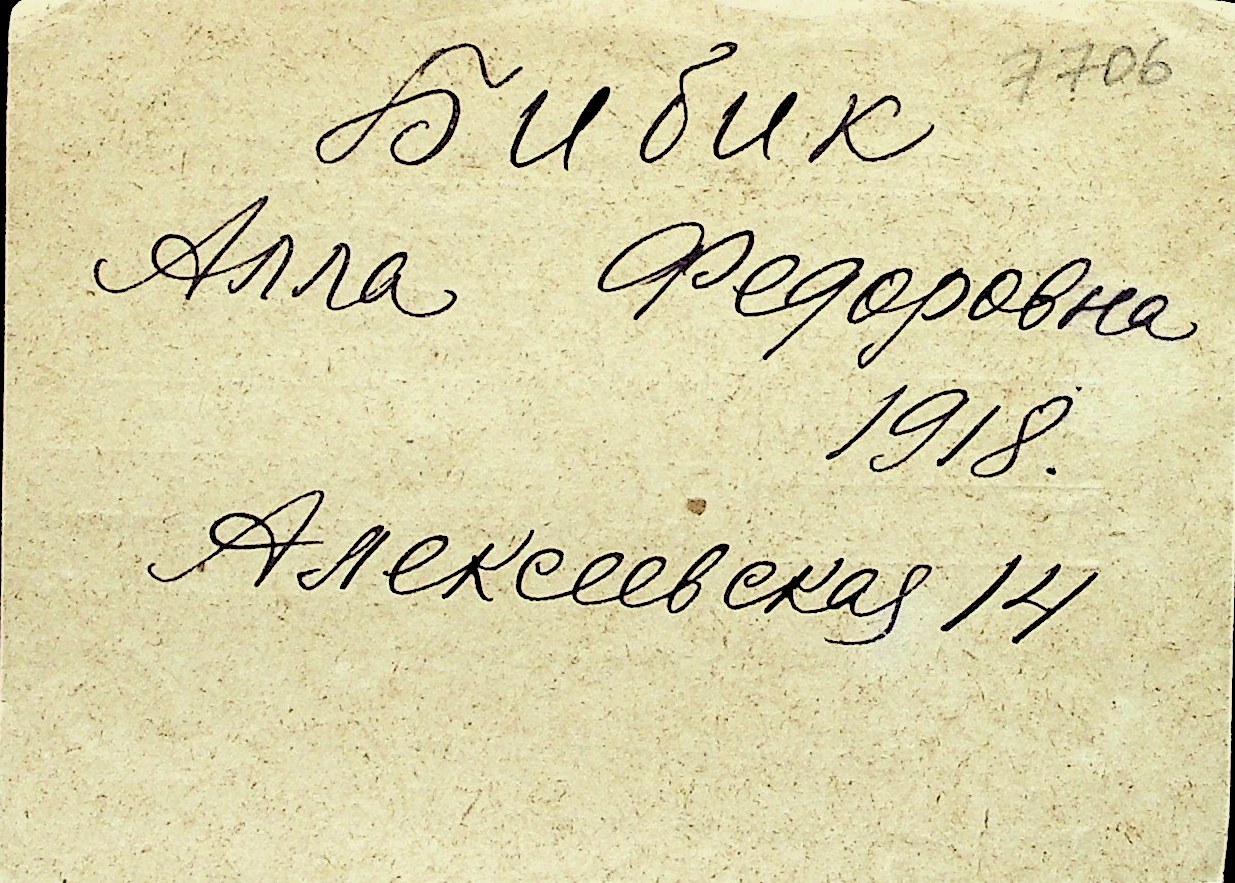 7706
Бибик
Алла Федоровна
1918.
Алексеевская 14